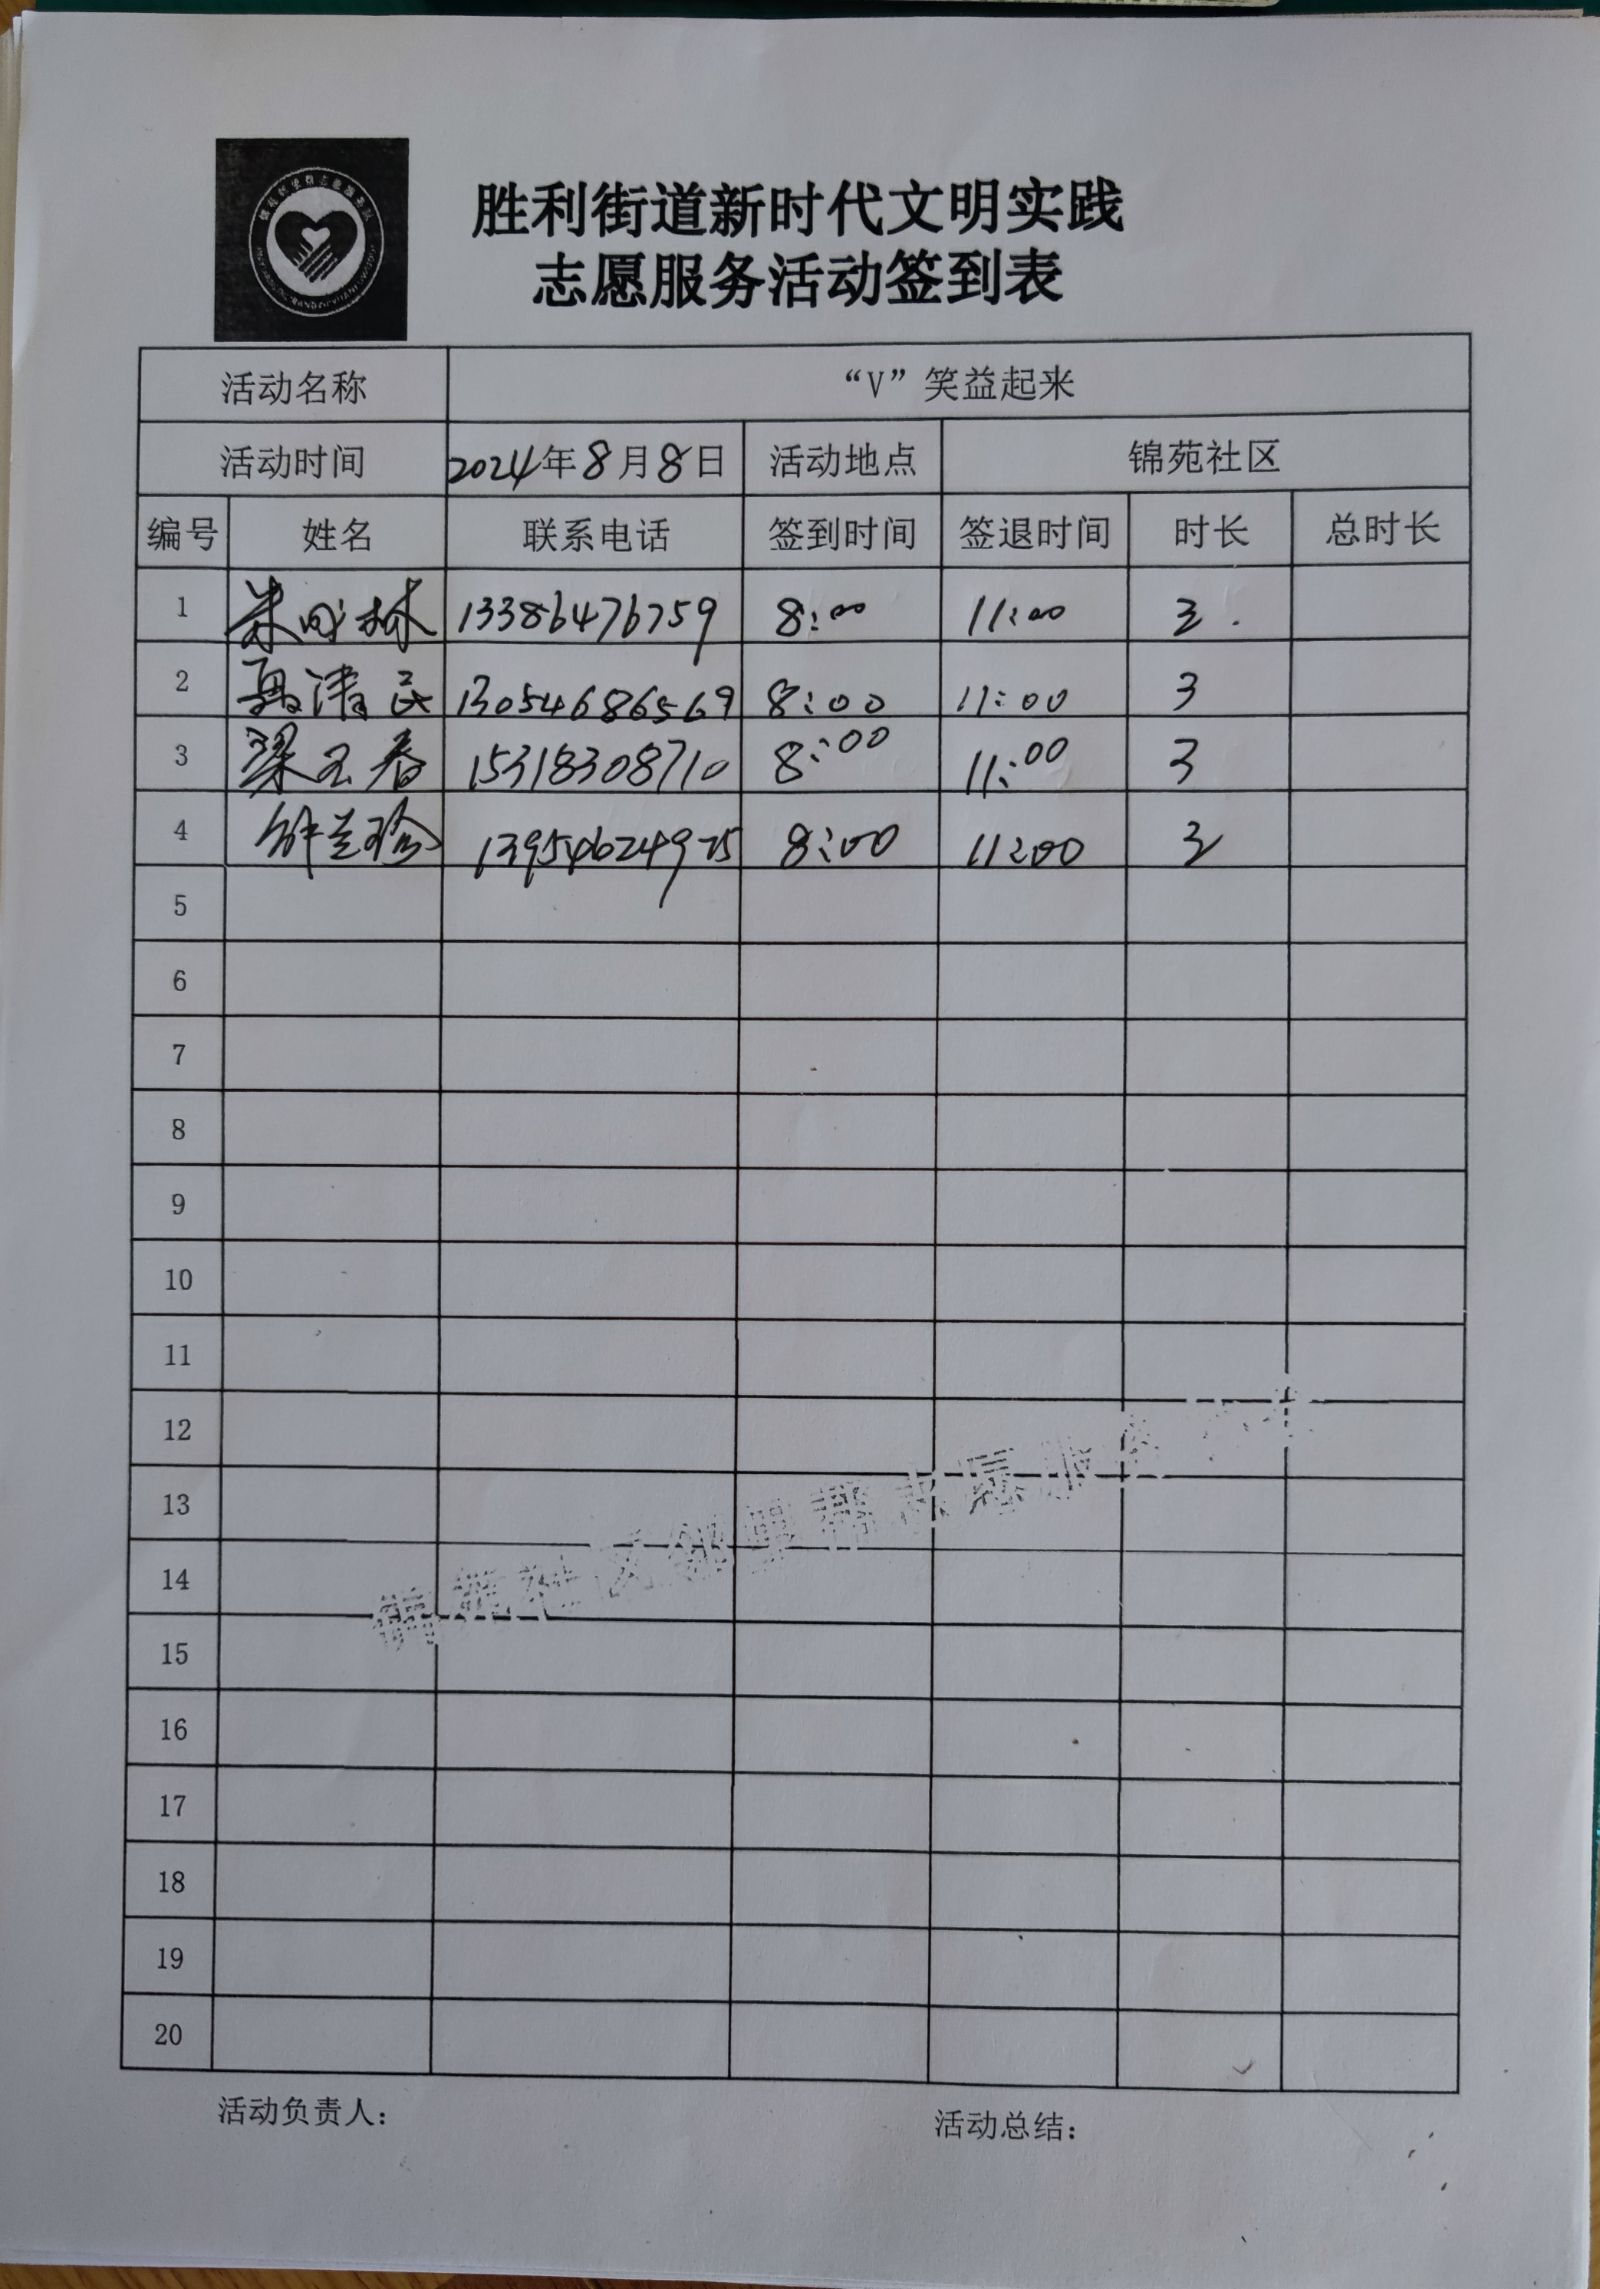 胜利街道新时代文明实践
志愿服务活动签到表
活动名称 “V”笑益起来
活动时间 2024年8月8日 活动地点 锦苑社区
编号 姓名 联系电话 签到时间 签退时间 时长 总时长
1 林 13386476759 8:00 11:00 3
2 聂清民 13054686569 8:00 11:00 3
3 梁玉春 15318308710 8:00 11:00 3
4 钟兰珍 13954624975 8:00 11:00 3
5
6
7
8
9
10
11
12
13
14
15
16
17
18
19
20
锦苑社区邻里帮志愿服务
活动负责人: 活动总结: